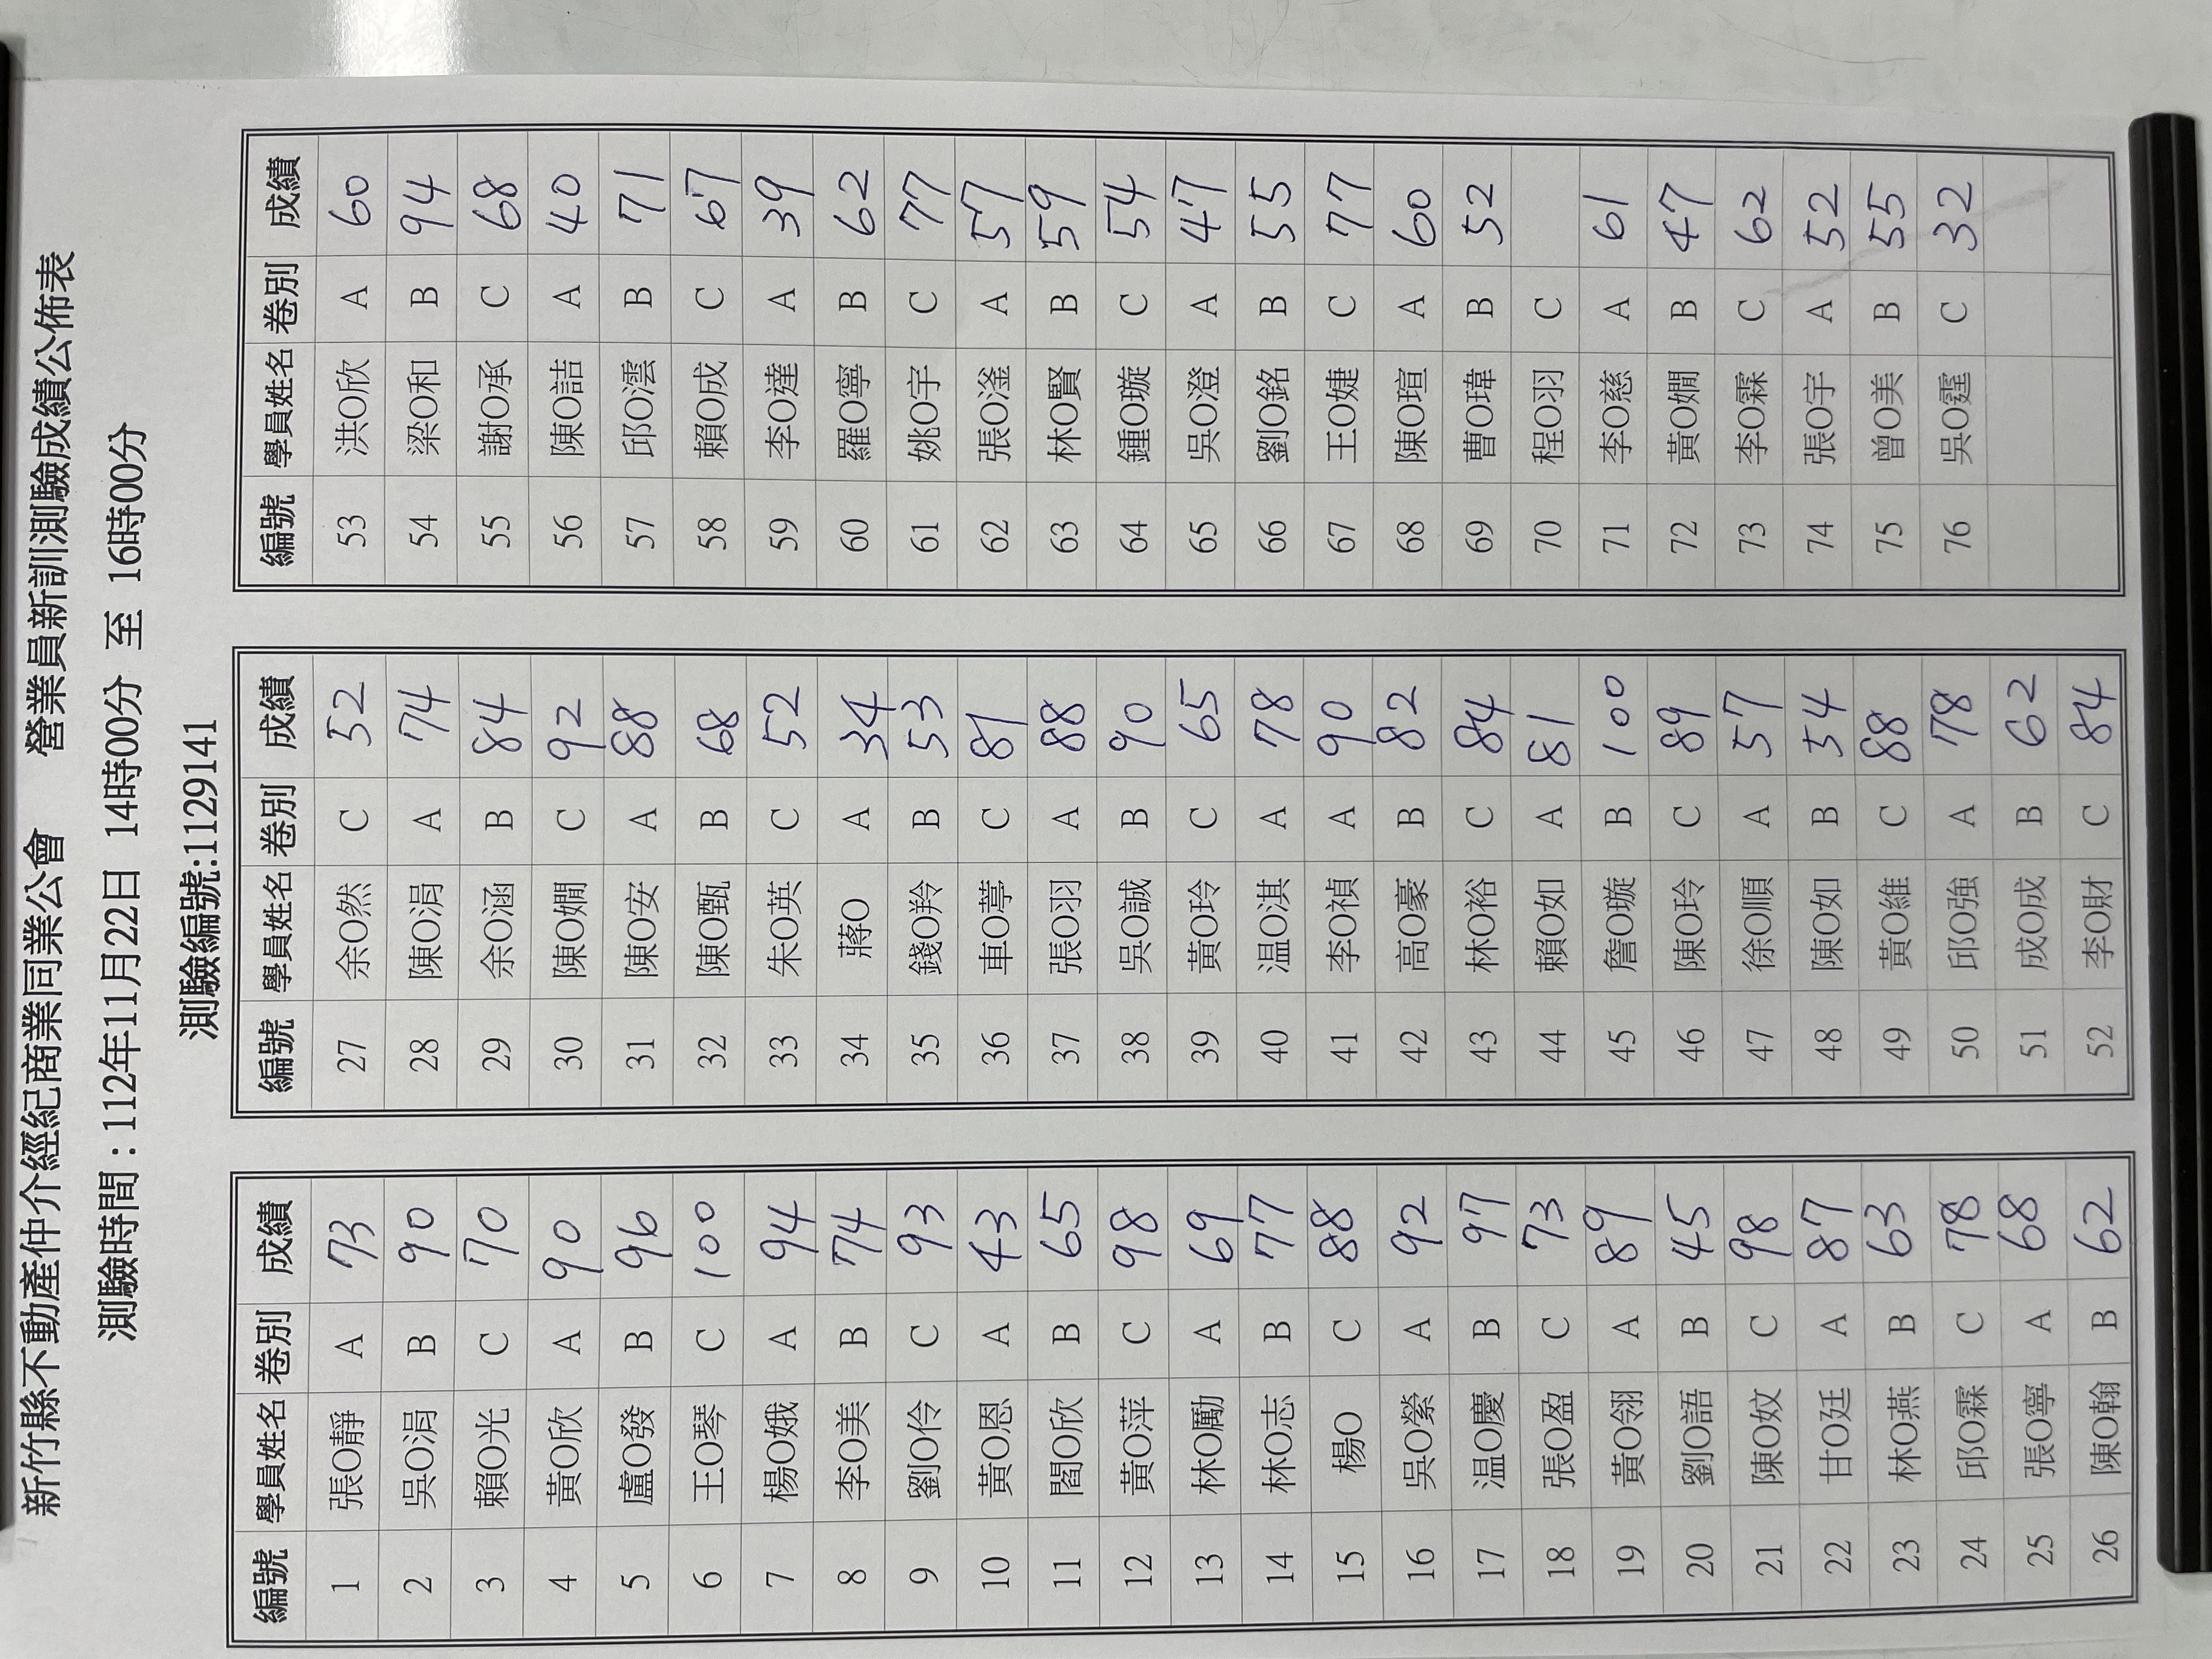 新竹縣不動產仲介經紀商業同業公會 營業員新訓測驗成績公佈表
測驗時間：112年11月22日 14時00分 至 16時00分
測驗編號:1129141
編號 學員姓名 卷別 成績
1 張O靜 A 73
2 吳O涓 B 90
3 賴O光 C 70
4 黃O欣 A 90
5 盧O發 B 96
6 王O琴 C 100
7 楊O娥 A 94
8 李O美 B 74
9 劉O伶 C 93
10 黃O恩 A 43
11 閻O欣 B 65
12 黃O萍 C 98
13 林O勵 A 69
14 林O志 B 77
15 楊O C 88
16 吳O縈 A 92
17 温O慶 B 97
18 張O盈 C 73
19 黃O翎 A 89
20 劉O語 B 45
21 陳O妏 C 98
22 甘O廷 A 87
23 林O燕 B 63
24 邱O霖 C 78
25 張O寧 A 68
26 陳O翰 B 62
編號 學員姓名 卷別 成績
27 余O然 C 52
28 陳O涓 A 74
29 余O涵 B 84
30 陳O嫺 C 92
31 陳O安 A 88
32 陳O甄 B 68
33 朱O英 C 52
34 蔣O A 34
35 錢O羚 B 53
36 車O葶 C 81
37 張O羽 A 88
38 吳O誠 B 90
39 黃O玲 C 65
40 温O淇 A 78
41 李O禎 A 90
42 高O豪 B 82
43 林O裕 C 84
44 賴O如 A 81
45 詹O璇 B 100
46 陳O玲 C 89
47 徐O順 A 57
48 陳O如 B 54
49 黃O維 C 88
50 邱O強 A 78
51 成O成 B 62
52 李O財 C 84
編號 學員姓名 卷別 成績
53 洪O欣 A 60
54 梁O和 B 94
55 謝O承 C 68
56 陳O詰 A 40
57 邱O澐 B 71
58 賴O成 C 67
59 李O達 A 39
60 羅O寧 B 62
61 姚O宇 C 77
62 張O滏 A 57
63 林O賢 B 59
64 鍾O璇 C 54
65 吳O澄 A 47
66 劉O銘 B 55
67 王O婕 C 77
68 陳O瑄 A 60
69 曹O瑋 B 52
70 程O羽 C
71 李O慈 A 61
72 黃O嫺 B 47
73 李O霖 C 62
74 張O宇 A 52
75 曾O美 B 55
76 吳O霆 C 32